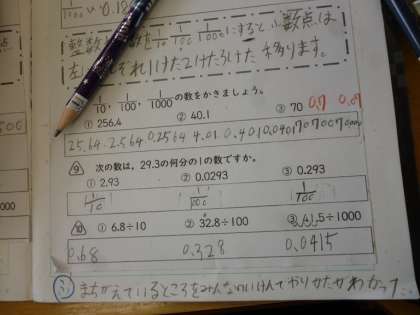 1/1000
整数や小数を1/10 1/100 1/1000にすると小数点は
左へそれぞれ1けた2けた3けた移ります。
1/10、1/100、1/1000の数をかきましょう。
① 256.4 ② 40.1 ③ 70 0.7
25.64 2.564 0.2564 4.01 0.401 0.0401
9 次の数は、29.3の何分の1の数ですか。
① 2.93 ② 0.0293 ③ 0.293
1/10 1/100
10 ① 6.8÷10 ② 32.8÷100 ③ 41.5÷1000
0.68 0.328 0.0415
まちがえているところをみんなのいけんでやりかたがわかった